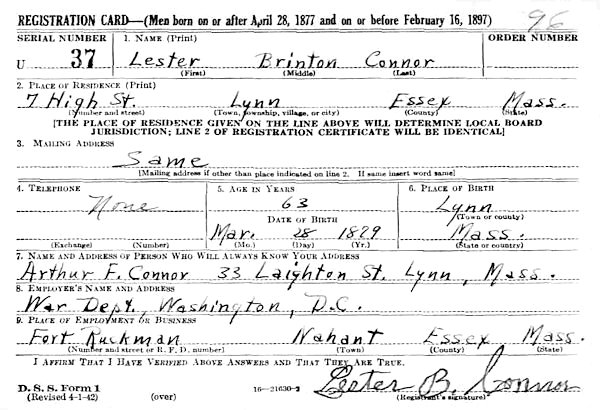 REGISTRATION CARD—(Men born on or after April 28, 1877 and on or before February 16, 1897) 96
SERIAL NUMBER 1. NAME (Print) ORDER NUMBER
U 37 Lester Brinton Connor
(First) (Middle) (Last)
2. PLACE OF RESIDENCE (Print)
7 High St. Lynn Essex Mass.
(Number and street) (Town, township, village, or city) (County) (State)
[THE PLACE OF RESIDENCE GIVEN ON THE LINE ABOVE WILL DETERMINE LOCAL BOARD
JURISDICTION; LINE 2 OF REGISTRATION CERTIFICATE WILL BE IDENTICAL]
3. MAILING ADDRESS
Same
[Mailing address if other than place indicated on line 2. If same insert word same]
4. TELEPHONE 5. AGE IN YEARS 6. PLACE OF BIRTH
None 63 Lynn
DATE OF BIRTH (Town or county)
Mar. 28 1879 Mass.
(Exchange) (Number) (Mo.) (Day) (Yr.) (State or country)
7. NAME AND ADDRESS OF PERSON WHO WILL ALWAYS KNOW YOUR ADDRESS
Arthur F. Connor 33 Laighton St. Lynn, Mass.
8. EMPLOYER'S NAME AND ADDRESS
War Dept., Washington, D.C.
9. PLACE OF EMPLOYMENT OR BUSINESS
Fort Ruckman Nahant Essex Mass.
(Number and street or R. F. D. number) (Town) (County) (State)
I AFFIRM THAT I HAVE VERIFIED ABOVE ANSWERS AND THAT THEY ARE TRUE.
Lester B. Connor
D. S. S. Form 1 16—21630-2 (Registrant's signature)
(Revised 4-1-42) (over)